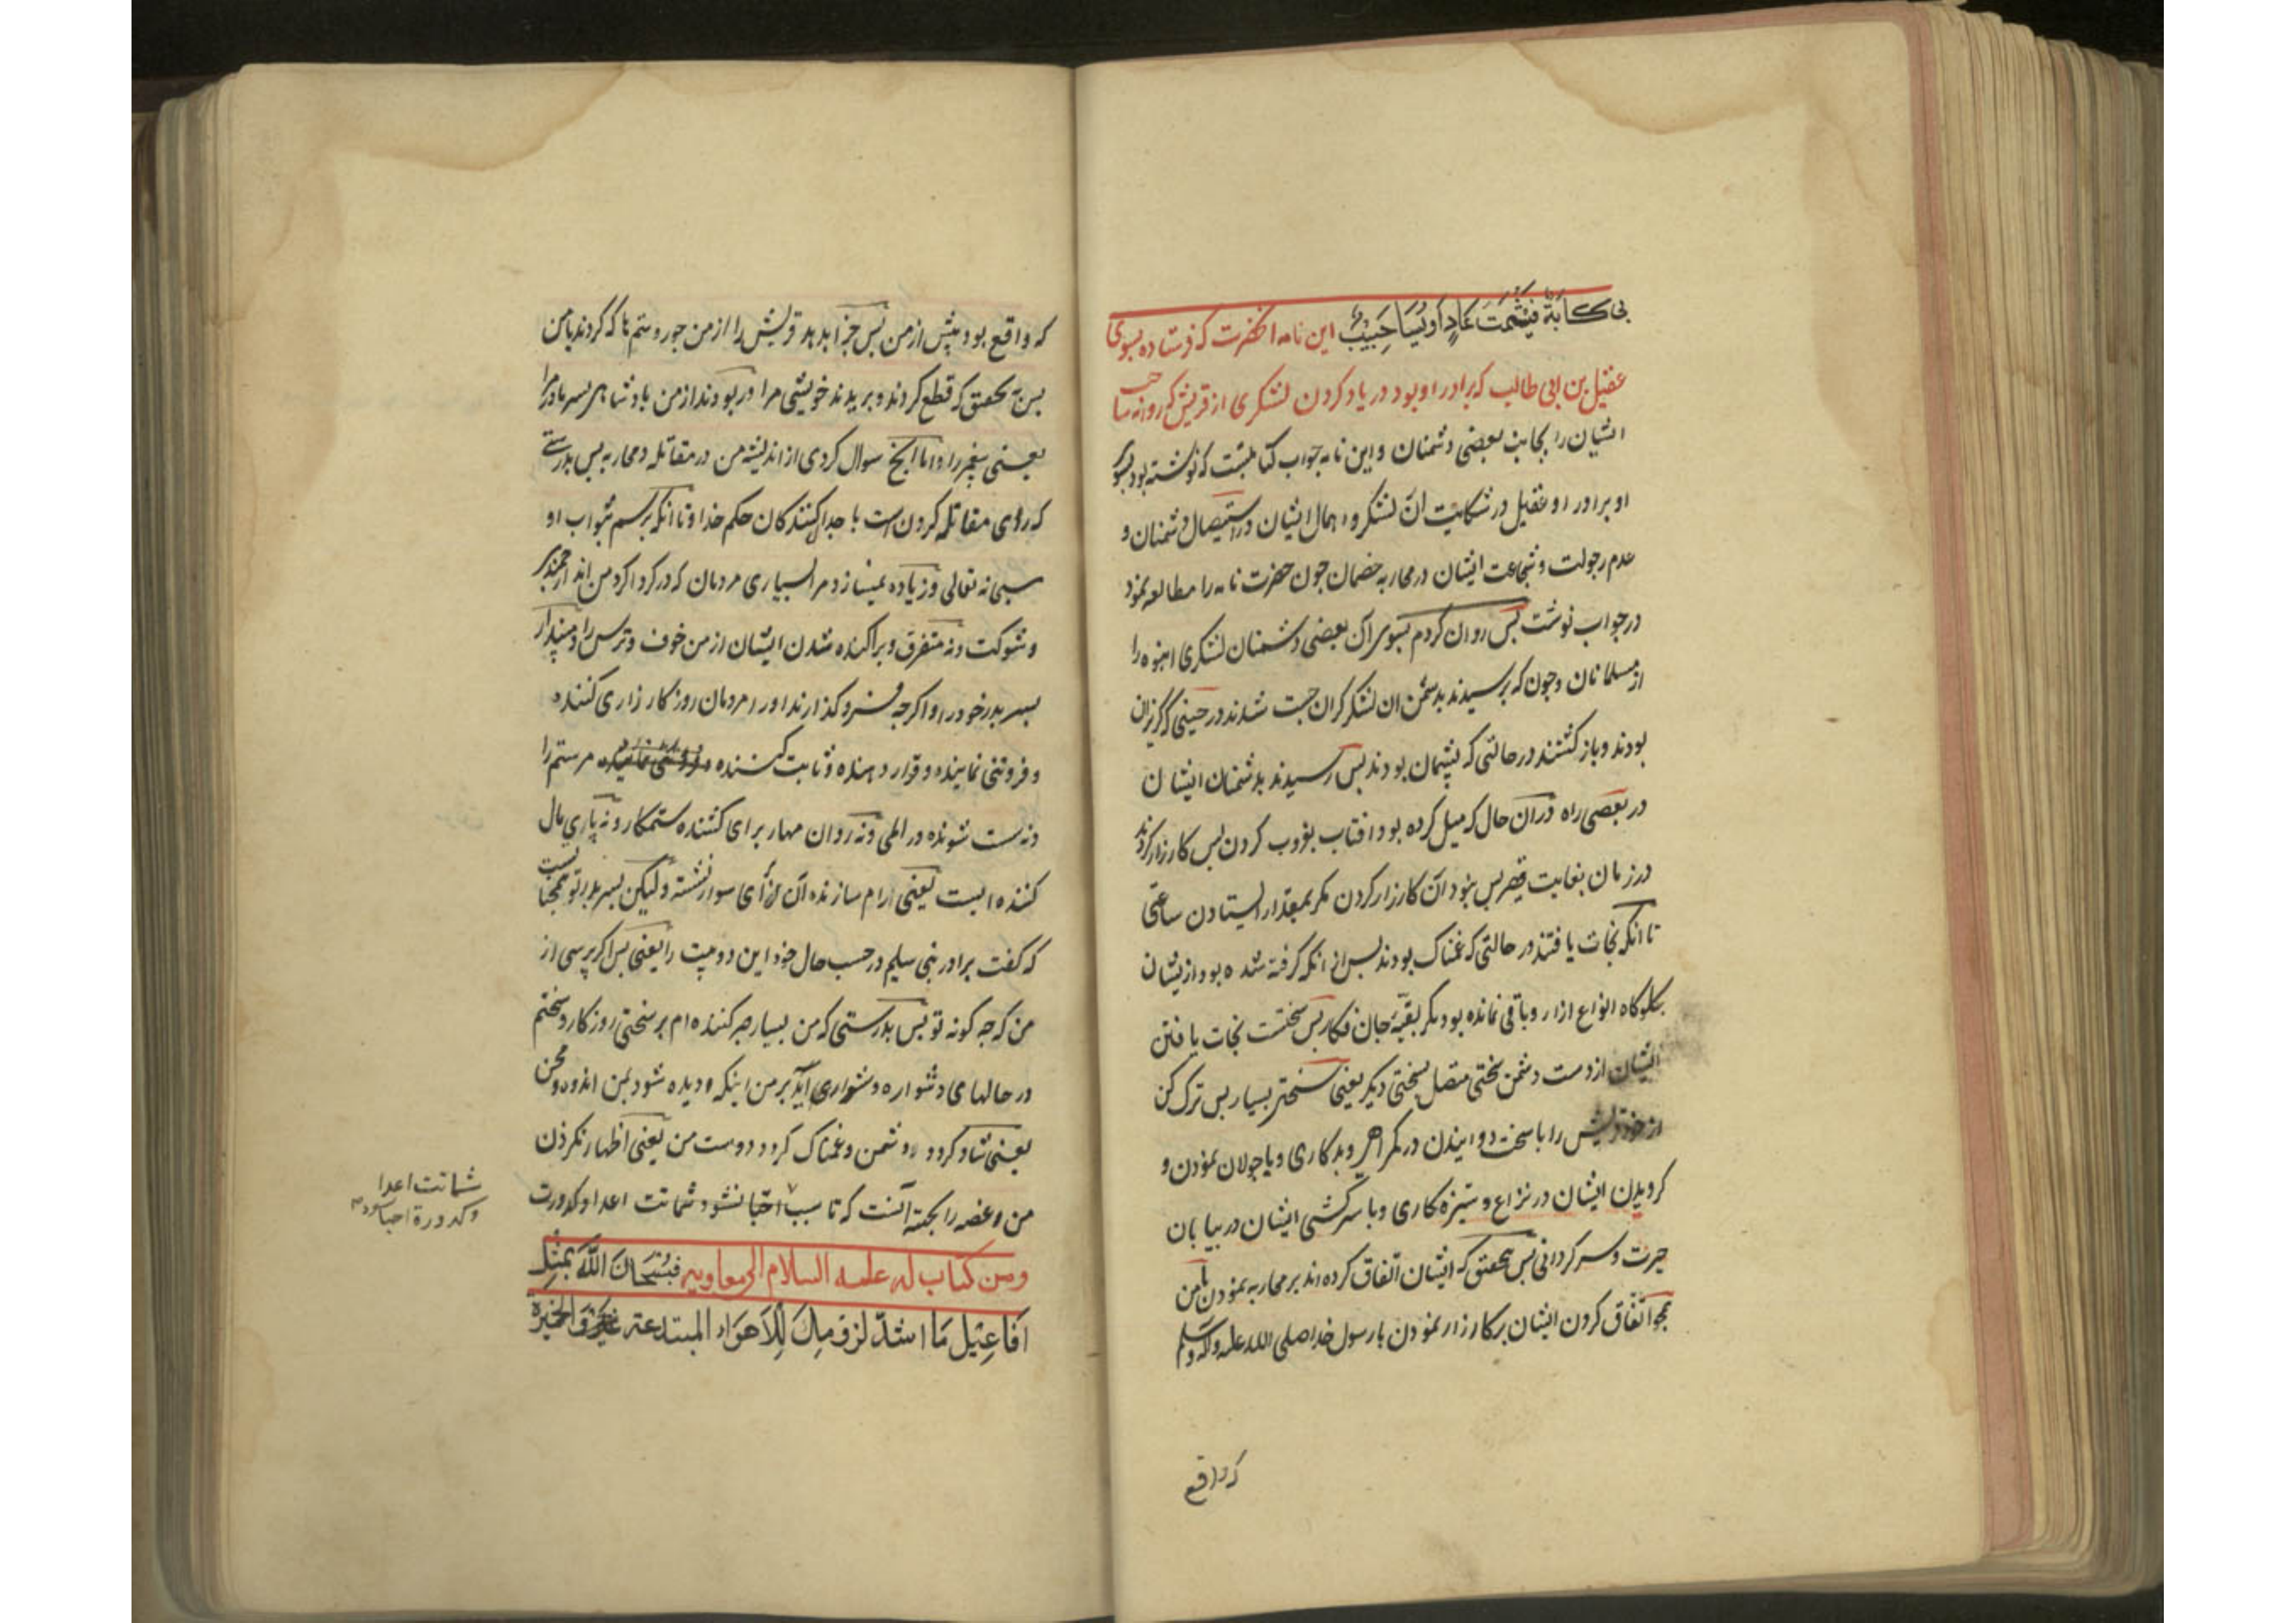 بی کآبة فیشمت عاد او یسا حبیب این نامه انحضرت که فرستاده بسوی
عقیل بن ابی طالب که برادر او بود در یاد کردن لشکری از قریش که روانه ساخت
ایشان را بجانب بعضی دشمنان و این نامه جواب کتابیست که نوشته بود بسوی
او برادر او عقیل در شکایت آن لشکر و اهمال ایشان در استیصال دشمنان و
عدم رجولت و شجاعت ایشان در محاربه خصمان چون حضرت نامه را مطالعه نمود
در جواب نوشت پس روان کردم بسوی آن بعضی دشمنان لشکری انبوه را
از مسلمانان و چون که برسیدند بدشمن ان لشکر کران جست شدند در حینی که گریزان
بودند و باز کشتند در حالتی که پشیمان بودند پس رسیدند بدشمنان ایشان
در بعضی راه در آن حال که میل کرده بود افتاب بغروب کردن پس کارزار کردند
در زمان بغایت قصیر پس نبود آن کارزار کردن مکر بمقدار ایستادن ساعتی
تا آنکه نجات یافتند در حالتی که غمناک بودند پس از انکه کرفته شده بود از یشان
بکلوکاه انواع ازار و باقی نمانده بود مکر بقیه جان فکار پس سختست نجات یافتن
ایشان از دست دشمن سختی متصل بسختی دیکر یعنی سختتر بسیار پس ترک کن
از خود قریش را با سخت دوانیدن در کمراهی و بدکاری و با جولان نمودن و
کردیدن ایشان در نزاع و ستیزه کاری و با سرکشی ایشان در بیابان
حیرت و سرکردانی پس بتحقیق که ایشان اتفاق کرده اند بر محاربه نمودن با من
همچو اتفاق کردن ایشان بر کارزار نمودن با رسول خدا صلی الله علیه و آله وسلم
که واقع
که واقع بود پیش از من پس جزا بدهد قریش را از من جور و ستم ها که کردند با من
پس بتحقیق که قطع کردند و بریدند خویشی مرا و ربودند از من پادشاهی پسر مادر مرا
یعنی پیغمبر را و اما آنچ سوال کردی از اندیشه من در مقاتله و محاربه پس بدرستی
که رای مقاتله کردن است با جدال کنندکان حکم خدا و تا انکه برسم بثواب او
سبحانه تعالی و زیاده نمیسازد مرا بسیاری مردمان که در کرداکرد من اند ارجمندی
و شوکت و نه متفرق و پراکنده شدن ایشان از من خوف و ترس را و مپندار
پسر پدر خود را و اکرچه فرو کذارند او را مردمان روزکار زاری کننده
و فروتنی نماینده و قرار دهنده و ثابت کننده مر ستم را
و نه سست شونده در المی و نه روان مهار برای کشنده ستمکار و نه پاری مال
کننده ایست یعنی ارام سازنده آن برای سوار نشسته ولیکن پسر پدر تو همچنانست
که کفت برادر بنی سلیم در حسب حال خود این دو بیت را یعنی پس اکر پرسی از
من که چه کونه تو پس بدرستی که من بسیار صبر کننده ام بر سختی روزکار و سختم
در حالهای دشوار ه دشواری آید بر من اینکه و دیده شود بمن اندوه و محن
یعنی شاد کردد دشمن و غمناک کردد دوست من یعنی اظهار نکردن
من و غصه را بجهة آنست که تا سبب احبا نشود شماتت اعدا و کدورت
شماتت اعدا
و کدورة احبا شود
ومن کتاب له علیه السلام الی معاویه فسبحان الله بمثل
افاعیل ما اشد لزومک للاهواء المبتدعة والحیرة